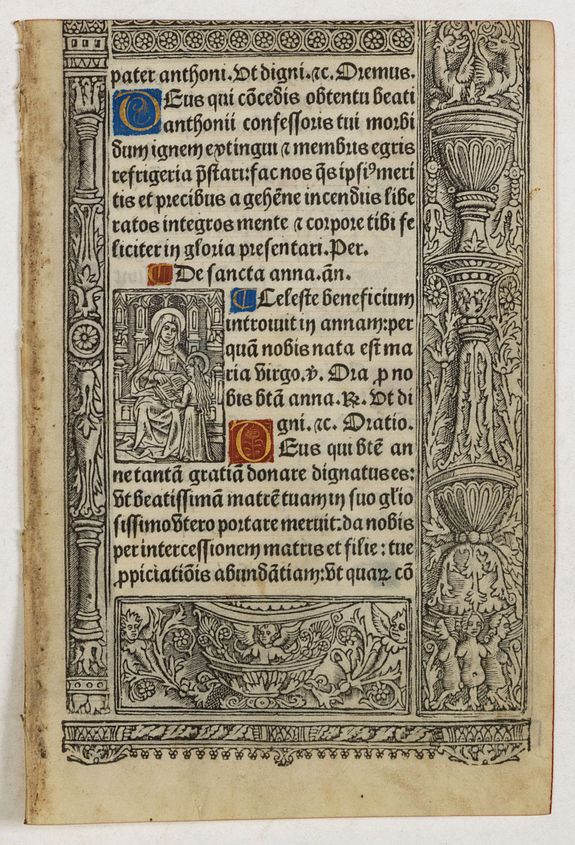 pater anthoni. Vt digni. ⁊c. Oremus.
DEus qui cõcedis obtentu beati
anthonii confessoris tui morbi
dum ignem extingui ⁊ membris egris
refrigeria p̃stari: fac nos q̃s ipsiꝰ meri
tis et precibus a gehẽne incendiis libe
ratos integros mente ⁊ corpore tibi fe
liciter in gloria presentari. Per.
De sancta anna. añ.
CEleste beneficium
introiuit in annam: per
quã nobis nata est ma
ria virgo. ℣. Ora ꝓ no
bis btã anna. ℟. Vt di
gni. ⁊c. Oratio.
DEus qui btẽ an
ne tantã gratiã donare dignatus es:
vt beatissimã matrẽ tuam in suo gl̃io
sissimo vtero portare meruit: da nobis
per intercessionem matris et filie: tue
ꝓpiciatiõis abundãtiam: vt quaꝝ cõ